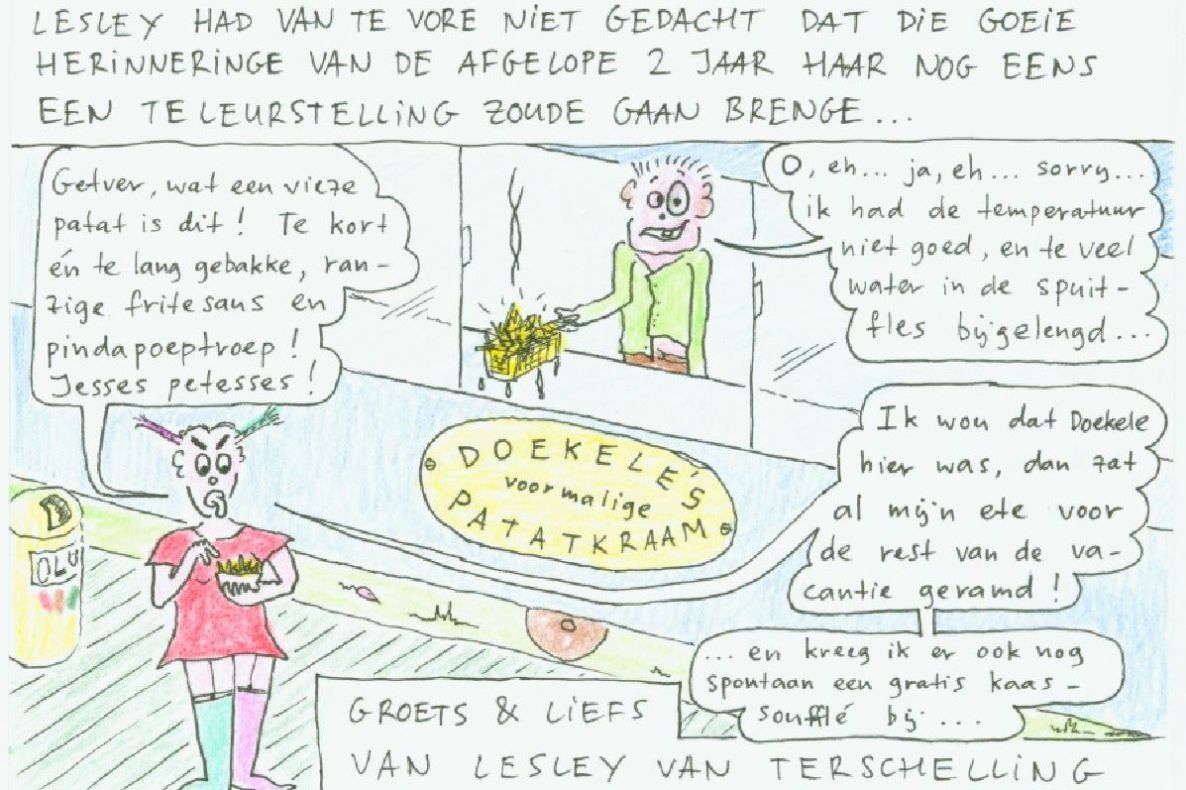 LESLEY HAD VAN TE VORE NIET GEDACHT DAT DIE GOEIE
HERINNERINGE VAN DE AFGELOPE 2 JAAR HAAR NOG EENS
EEN TELEURSTELLING ZOUDE GAAN BRENGE...
Getver, wat een vieze
patat is dit! Te kort
én te lang gebakke, ran-
zige fritesaus en
pindapoeptroep!
Jesses petesses!
O, eh... ja, eh... sorry...
ik had de temperatuur
niet goed, en te veel
water in de spuit-
fles bijgelengd...
DOEKELE'S
voormalige
PATATKRAAM
Ik wou dat Doekele
hier was, dan zat
al mijn ete voor
de rest van de va-
cantie geramd!
... en kreeg ik er ook nog
spontaan een gratis kaas-
soufflé bij...
OLA
GROETS & LIEFS
VAN LESLEY VAN TERSCHELLING